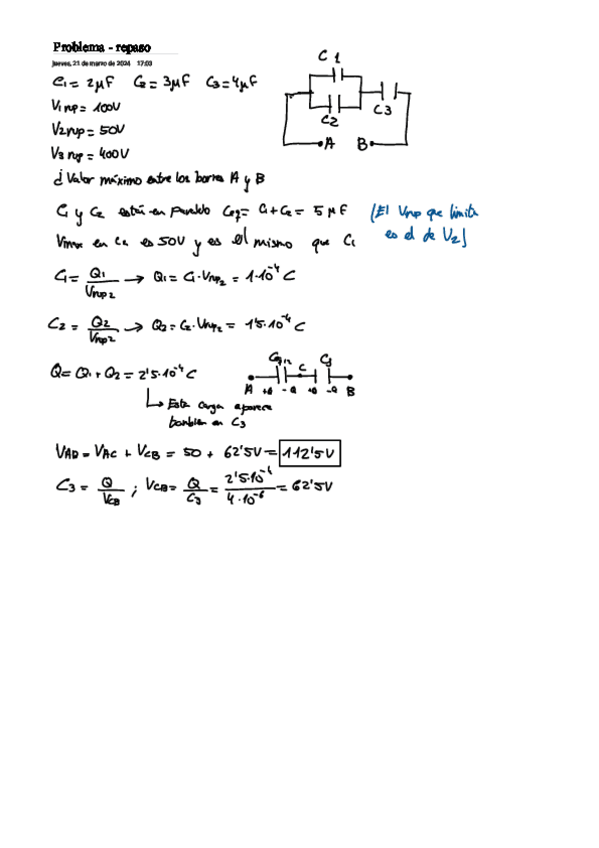 Problema - repaso
jueves, 21 de marzo de 2024 17:03
C1 = 2μF C2 = 3μF C3 = 4μF
V1 rup = 100V
V2 rup = 50V
V3 rup = 400V
¿Valor máximo entre los bornes A y B
C1
C2
C3
A B
C1 y C2 están en paralelo Ceq = C1 + C2 = 5 μF
(El Vrup que limita
es el de V2)
Vmax en C2 es 50V y es el mismo que C1
C1 = Q1/Vrup2 → Q1 = C1·Vrup2 = 1·10⁻⁴ C
C2 = Q2/Vrup2 → Q2 = C2·Vrup2 = 1'5·10⁻⁴ C
Q = Q1 + Q2 = 2'5·10⁻⁴ C
↳ Esta carga aparece
también en C3
C C3
A +Q -Q +Q -Q B
VAB = VAC + VCB = 50 + 62'5V = 112'5V
C3 = Q/VCB ; VCB = Q/C3 = 2'5·10⁻⁴/4·10⁻⁶ = 62'5V